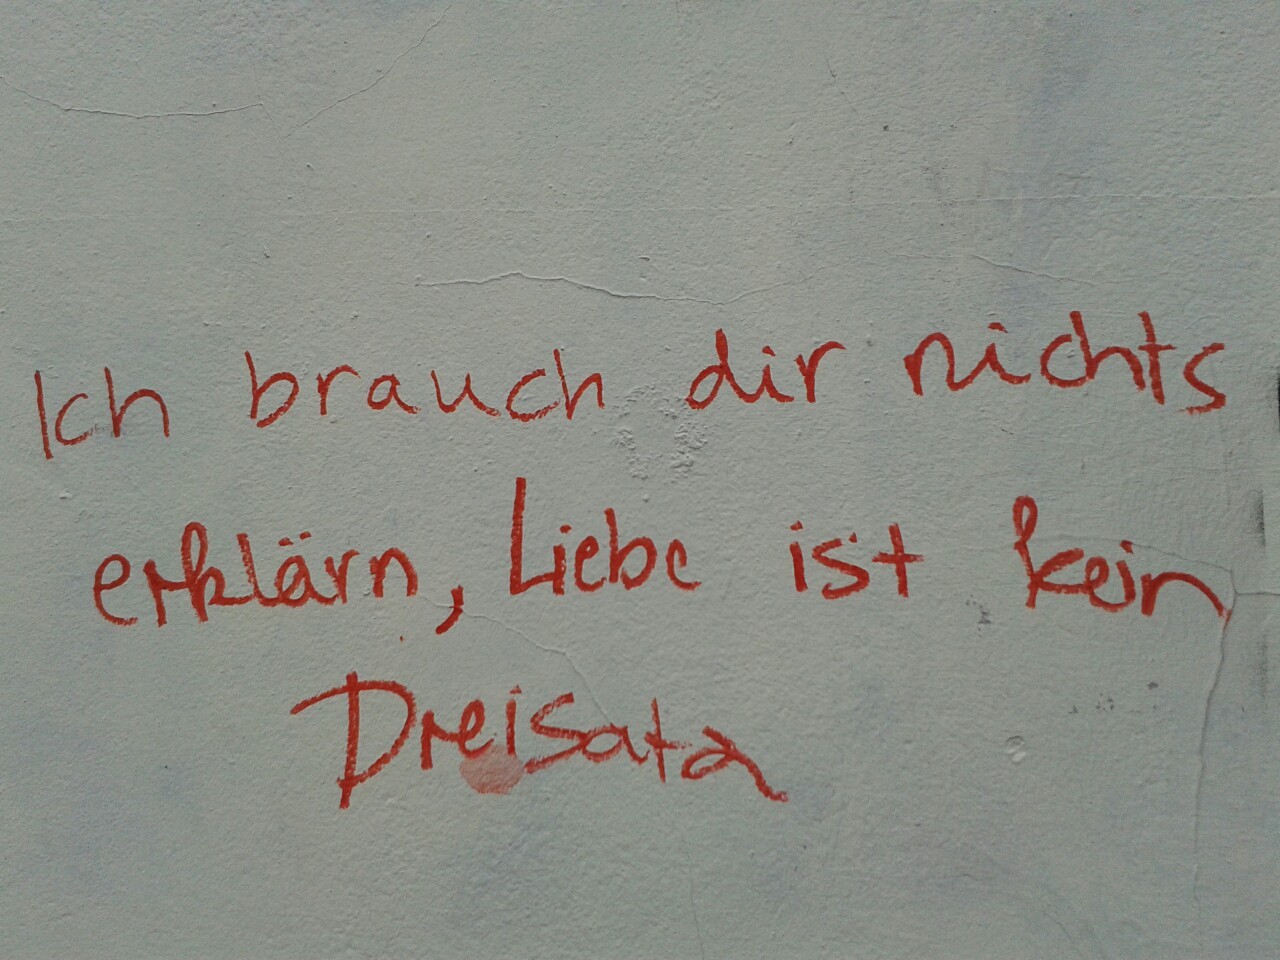 Ich brauch dir nichts
erklärn, Liebe ist kein
Dreisatz